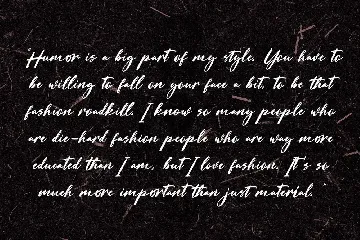 "Humor is a big part of my style. You have to
be willing to fall on your face a bit, to be that
fashion roadkill. I know so many people who
are die-hard fashion people who are way more
educated than I am, but I love fashion. It's so
much more important than just material. "